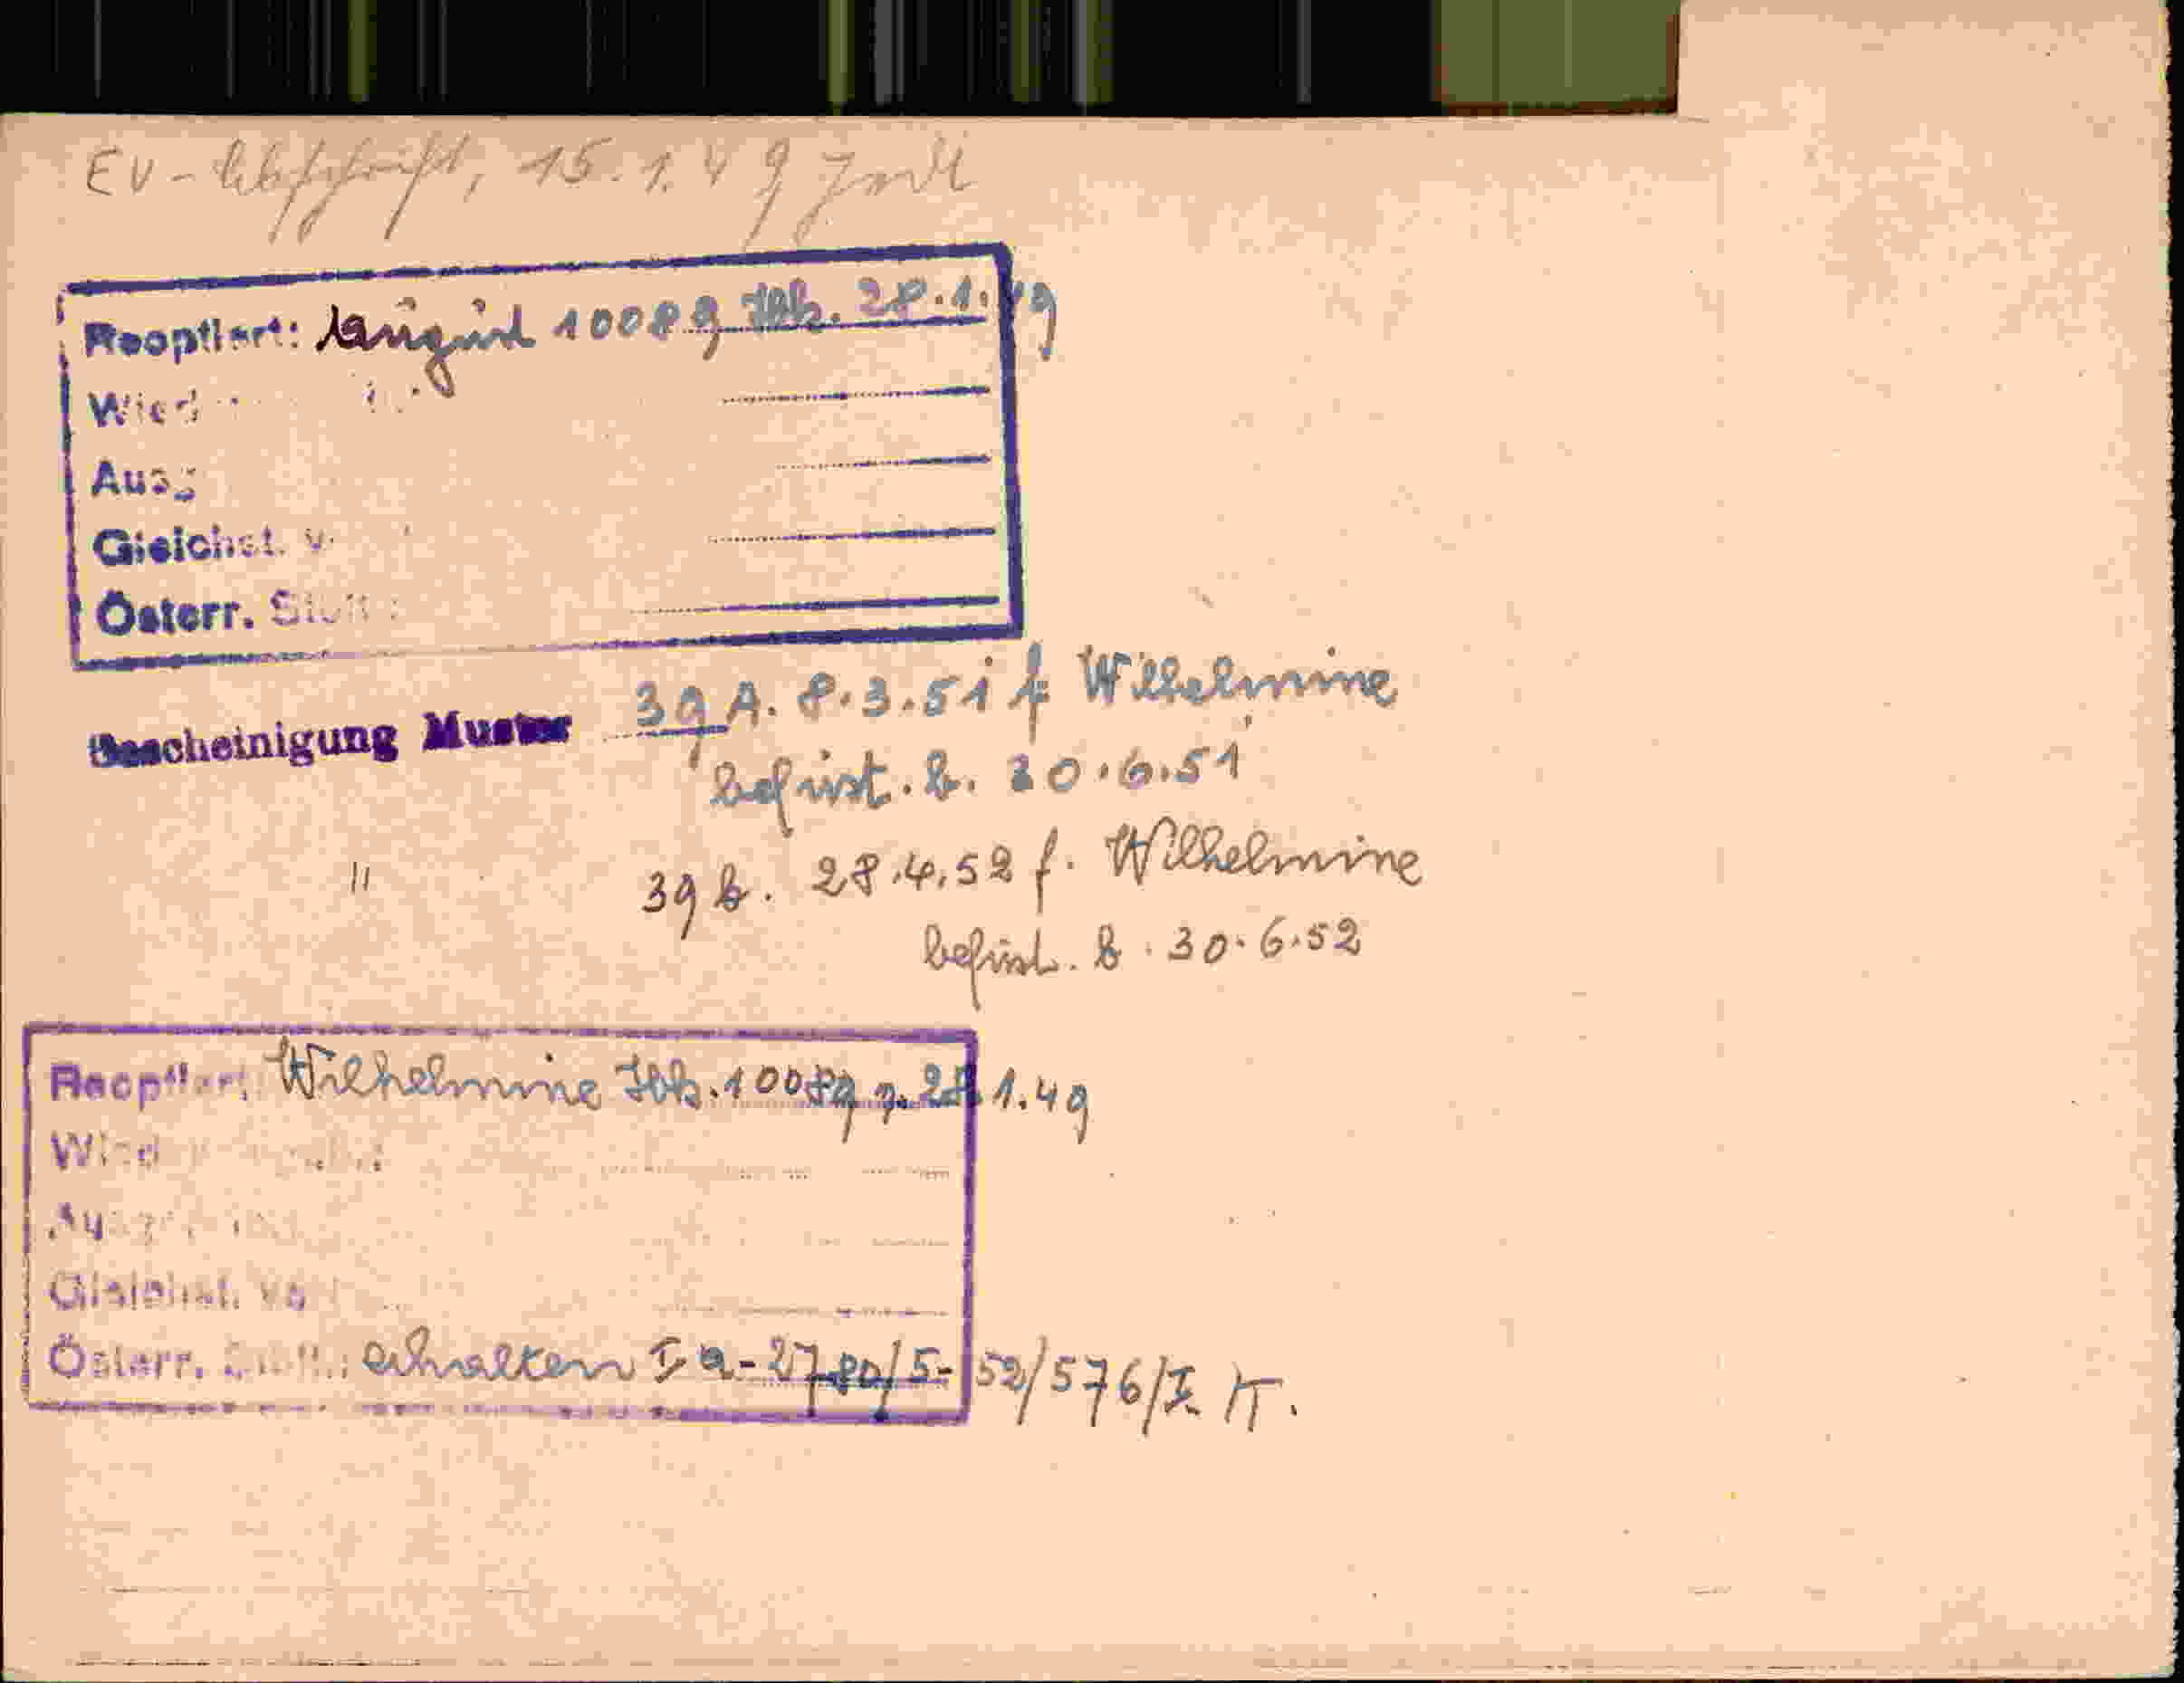 EV-Abschrift, 15.1.49
Reoptiert: August 10089 Ibk. 28.1.49
Wied
Ausg
Gleichst. v.
Österr.
Bescheinigung Muster 39 A. 8.3.51 f. Wilhelmine
befrist. b. 30.6.51
" 39 b. 28.4.52 f. Wilhelmine
befrist. b. 30.6.52
Reoptiert: Wilhelmine Ibk. 10089 v. 28.1.49
Wied
Gleichst.
Österr. erhalten I a - 2780/5-52/576/I